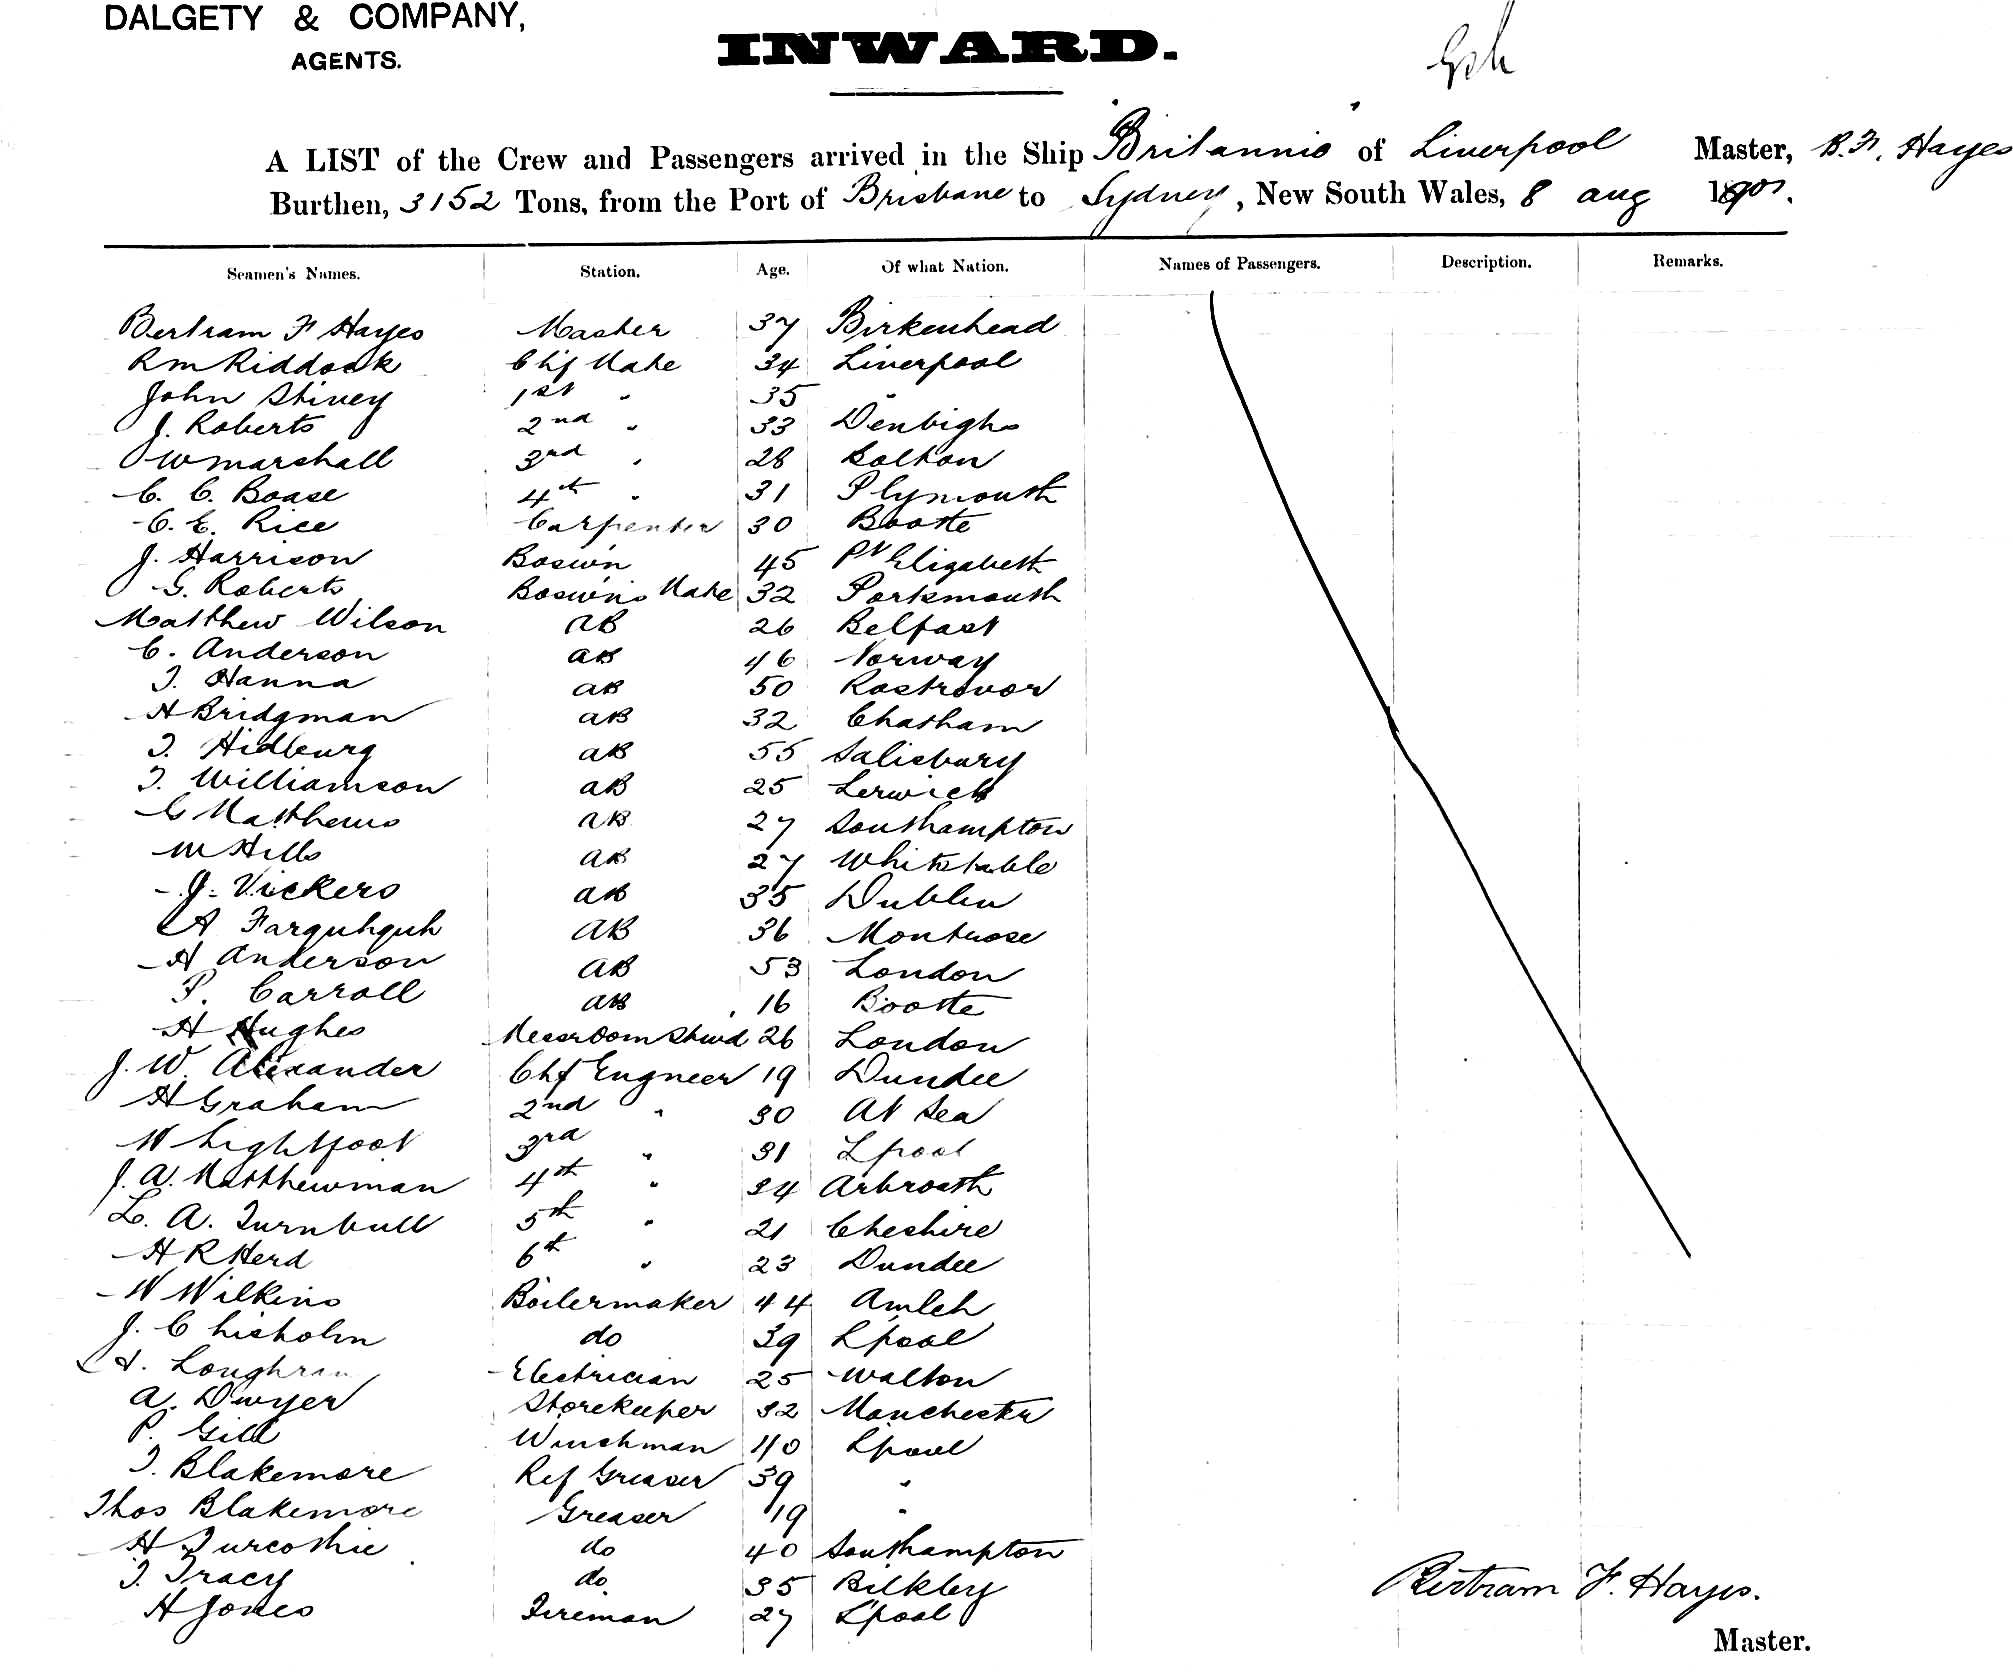 DALGETY & COMPANY,
AGENTS.
INWARD.
A LIST of the Crew and Passengers arrived in the Ship Britannic of Liverpool Master, B. F. Hayes
Burthen, 3152 Tons, from the Port of Brisbane to Sydney, New South Wales, 8 Aug 1901.
Seamen's Names. Station. Age. Of what Nation. Names of Passengers. Description. Remarks.
Bertram F Hayes Master 37 Birkenhead
R M Riddock Chif Mate 34 Liverpool
John Stivey 1st " 35 "
J. Roberts 2nd " 33 Denbigh
W Marshall 3rd " 28 Bolton
C. C. Boase 4th " 31 Plymouth
C. E. Rice Carpenter 30 Bootle
J. Harrison Bosw'n 45 Pt Elizabeth
G. Roberts Bosw'ns Mate 32 Portsmouth
Matthew Wilson AB 26 Belfast
C. Anderson AB 46 Norway
T. Hanna AB 50 Rostrovor
H Bridgman AB 32 Chatham
T. Hidburg AB 55 Salisbury
T. Williamson AB 25 Lerwick
C Matthews AB 27 Southampton
W Hills AB 27 Whitstable
J. Vickers AB 35 Dublin
A Farquhquh AB 36 Montrose
H Anderson AB 53 London
P. Carroll AB 16 Bootle
H Hughes Messroom Stwd 26 London
J. W. Alexander Chf Engneer 19 Dundee
H Graham 2nd " 30 At Sea
W Lightfoot 3rd " 31 Lpool
J. A. Matthewman 4th " 24 Arbroath
L. A. Turnbull 5th " 21 Cheshire
H R Herd 6th " 23 Dundee
W Wilkins Boilermaker 44 Amlch
J. Chisholm do 39 Lpool
Loughran Electrician 25 Walton
A. Dwyer Storekeeper 32 Manchester
P. Gill Winchman 40 Lpool
T. Blakemore Ref Greaser 39 "
Thos Blakemore Greaser 19 "
H do 40 Southampton
T. Tracy do 35
H Jones Fireman 27 Lpool
Bertram F. Hayes.
Master.